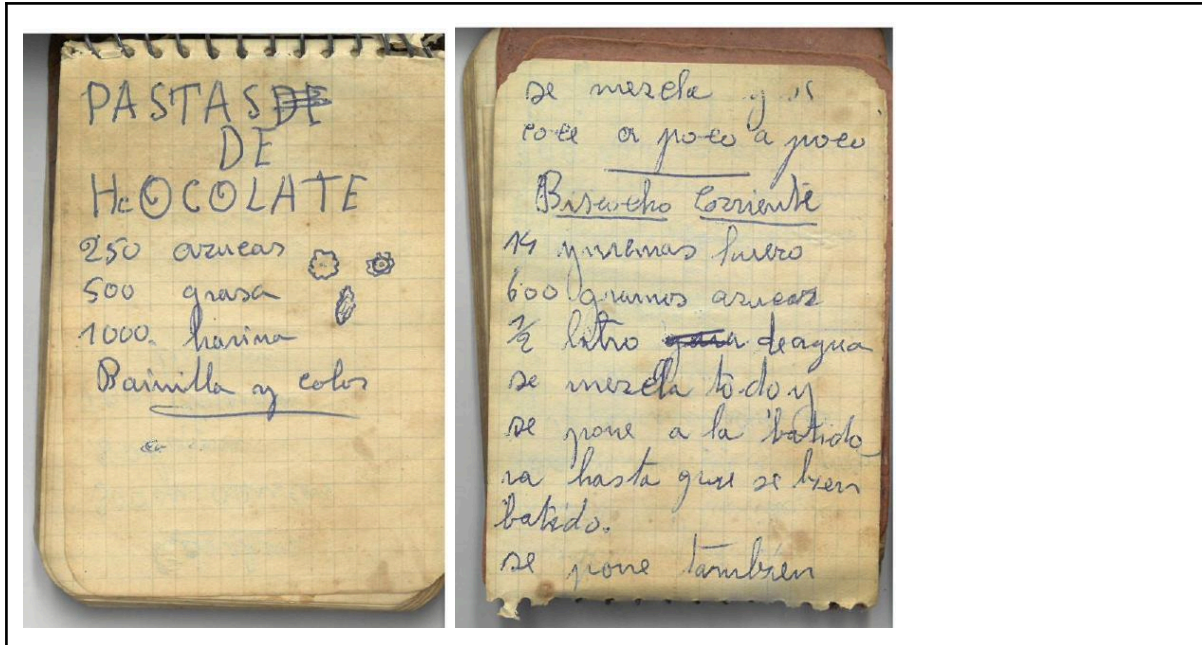 PASTAS
DE
HcOCOLATE
250 azucar
500 grasa
1000. harina
Bainilla y color
se mezcla y
coce a poco a poco
Biscocho Corriente
14 yuremas huevo
600 gramos azucar
1/2 litro de agua
se mezcla todo y
se pone a la batido
ra hasta que se bien
batido.
se pone tambien